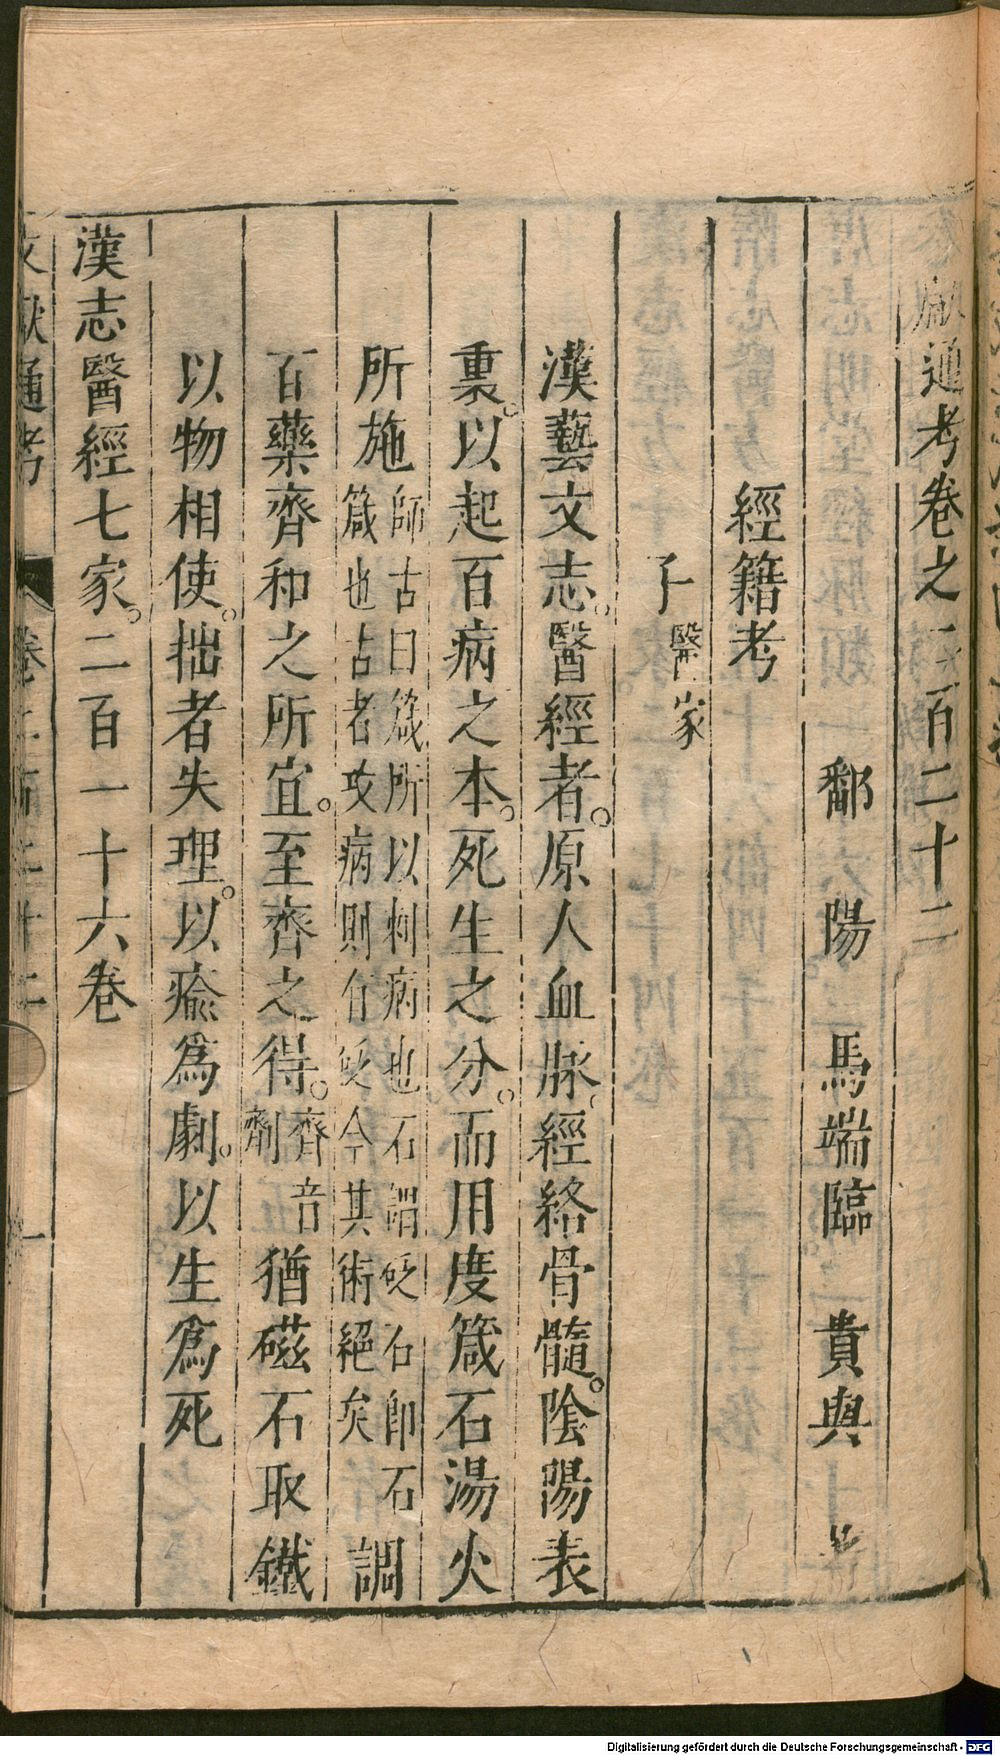 獻通考卷之二百二十二
鄱陽 馬端臨 貴與
經籍考
子醫家
漢藝文志。醫經者。原人血脈經絡骨髓。陰陽表
裏。以起百病之本。死生之分。而用度箴石湯火
所施師古曰箴所以刺病也石謂砭石即石箴也古者攻病則有砭今其術絕矣調
百藥齊和之所宜。至齊之得。齊音劑猶磁石取鐵
以物相使。拙者失理。以瘉爲劇。以生爲死
漢志醫經七家。二百一十六卷
文獻通考 卷二百二十二 一
Digitalisierung gefördert durch die Deutsche Forschungsgemeinschaft - DFG